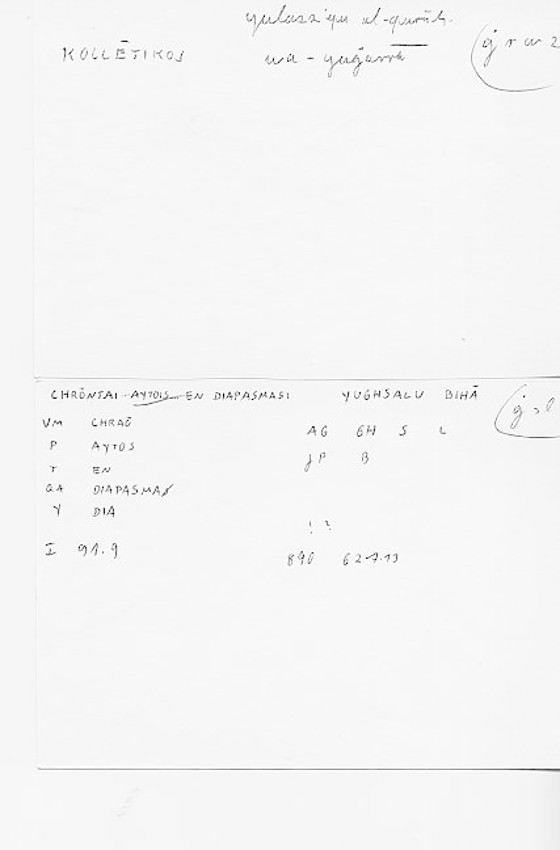 yulazziqu al-qurūḥ.
KOLLĒTIKOS wa-yuġarrā (ġ r w 2
CHRŌNTAI AYTOIS EN DIAPASMASI YUGHSALU BIHĀ (ġ s l
VM CHRAŌ AG GH S L
P AYTOS JP B
T EN
QA DIAPASMA
Y DIA ! ?
I 91.9 890 62-7.13